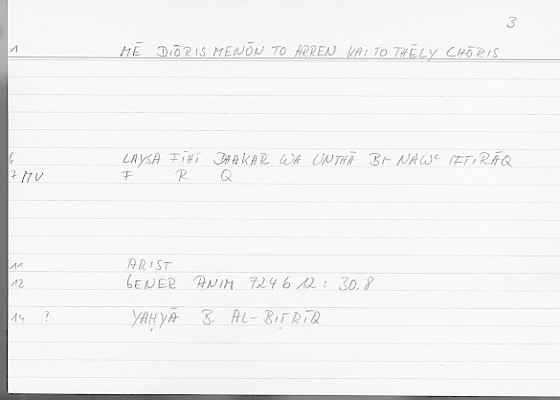 3
1 MĒ DIŌRISMENŌN TO ARREN KAI TO THĒLY CHŌRIS
6 LAYSA FĪHĪ ḎAAKAR WA UNTHĀ BI-NAWʿ IFTIRĀQ
7 MV F R Q
11 ARIST
12 GENER ANIM 724 b 12 : 30.8
14 ? YAḤYĀ B. AL-BIṬRĪQ